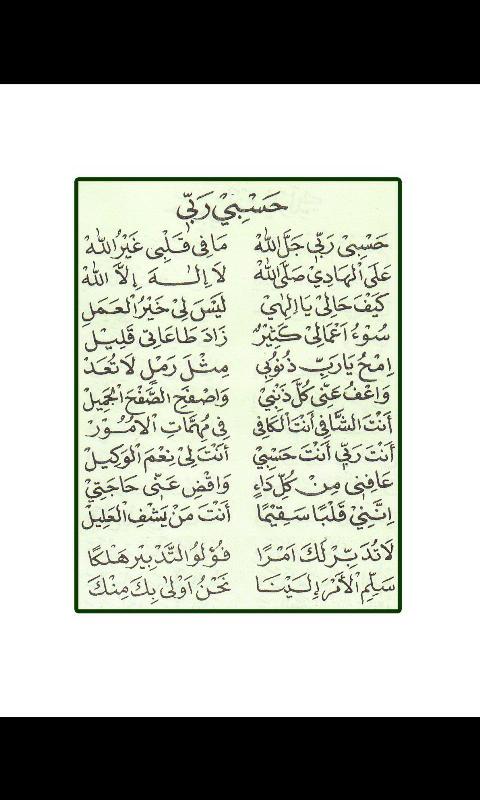 حَسْبِيْ رَبِّيْ
حَسْبِيْ رَبِّيْ جَلَّ اللهْ مَا فِى قَلْبِى غَيْرُ اللهْ
عَلَى الْهَادِيْ صَلَّى اللهْ لَا إِلٰـهَ إِلَّا اللهْ
كَيْفَ حَالِىْ يَا اِلٰهِيْ لَيْسَ لِىْ خَيْرُ الْعَمَلِ
سُوْءُ اَعْمَالِىْ كَثِيْرٌ زَادَ طَاعَاتِىْ قَلِيْل
اِمْحُ يَا رَبِّ ذُنُوْبِى مِثْلَ رَمْلٍ لَا تُعَدْ
وَاعْفُ عَنِّىْ كُلَّ ذَنْبِيْ وَاصْفَحِ الصَّفْحَ الْجَمِيْل
أَنْتَ الشَّافِى أَنْتَ الْكَافِى فِى مُهِمَّاتِ الْاُمُوْرْ
أَنْتَ رَبِّيْ أَنْتَ حَسْبِيْ أَنْتَ لِىْ نِعْمَ الْوَكِيْل
عَافِنِى مِنْ كُلِّ دَاءٍ وَاقْضِ عَنِّى حَاجَتِيْ
اِنَّنِيْ قَلْبًا سَقِيْمًا أَنْتَ مَنْ يَشْفِ الْعَلِيْلْ
لَا تُدَبِّرْ لَكَ اَمْرًا فَوْلُو التَّدْبِيْرِ هَلْكًا
سَلِّمِ الْأَمْرَ إِلَيْنَا نَحْنُ اَوْلٰى بِكَ مِنْكَ